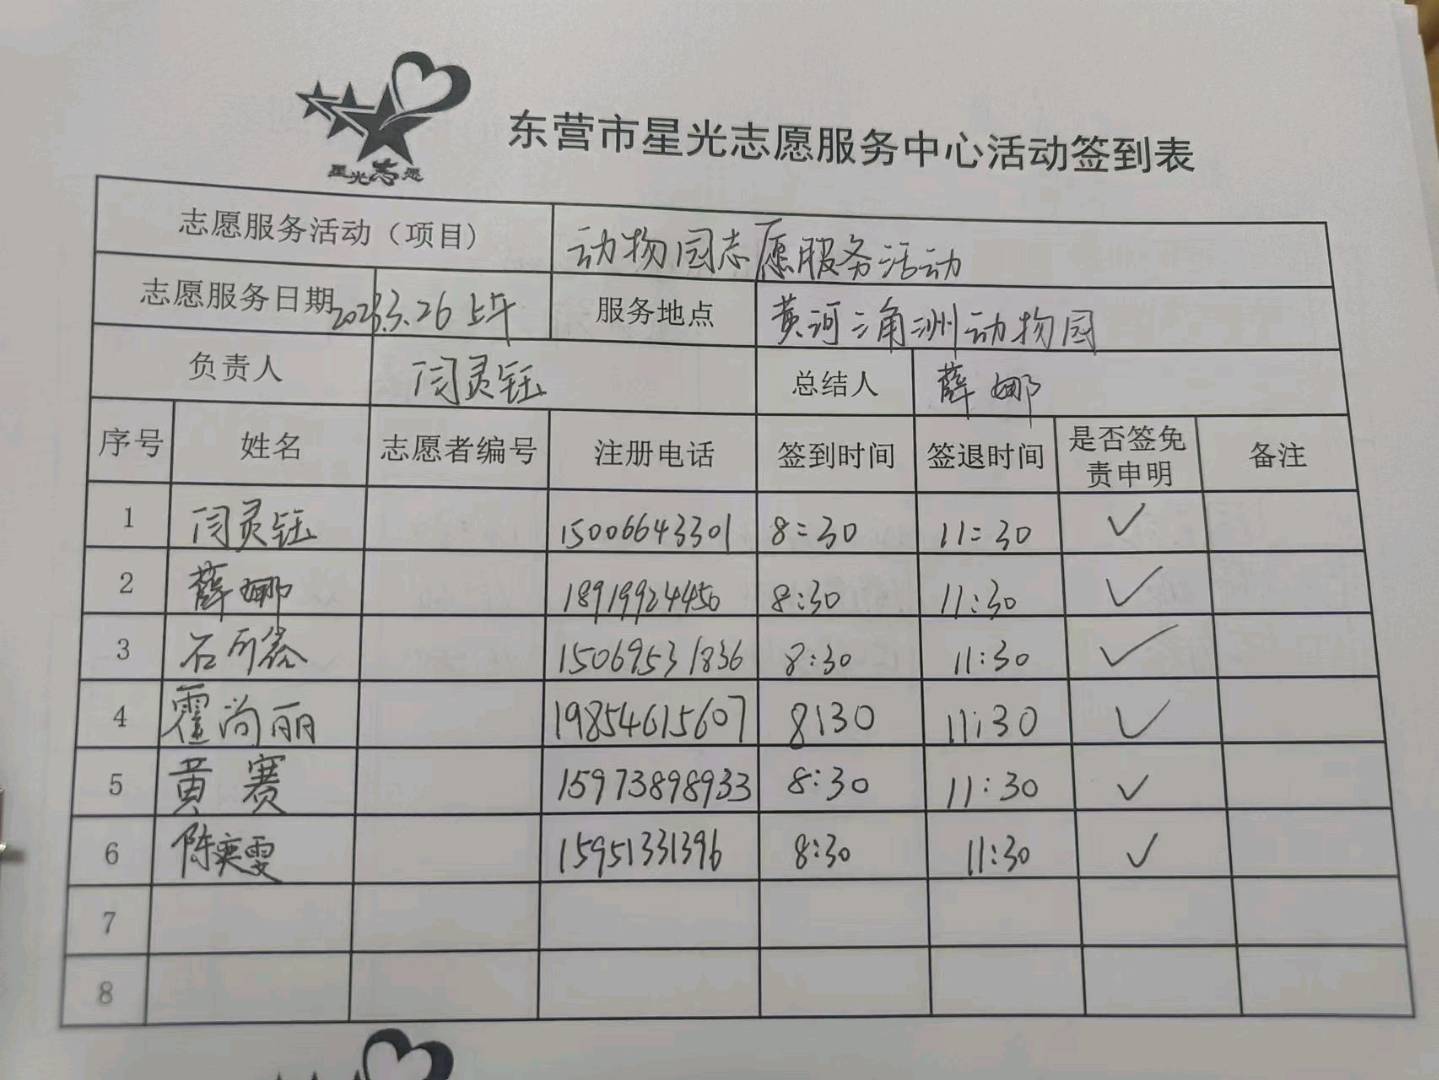 星光志愿
东营市星光志愿服务中心活动签到表
志愿服务活动（项目） 动物园志愿服务活动
志愿服务日期 2023.3.26 上午 服务地点 黄河三角洲动物园
负责人 闫灵钰 总结人 薛娜
序号 姓名 志愿者编号 注册电话 签到时间 签退时间 是否签免责申明 备注
1 闫灵钰 15006643301 8:30 11:30 ✓
2 薛娜 18919924450 8:30 11:30 ✓
3 石 15069531836 8:30 11:30 ✓
4 霍尚丽 19854615607 8:30 11:30 ✓
5 黄赛 15973898933 8:30 11:30 ✓
6 陈奕雯 15951331396 8:30 11:30 ✓
7
8